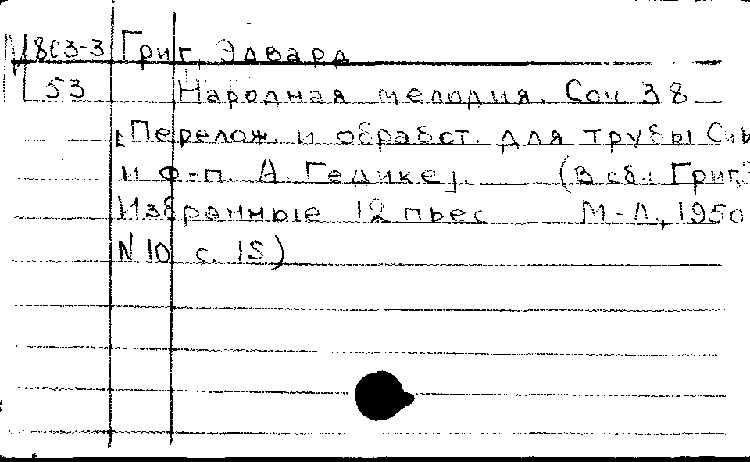 М8С3-3 Григ, Эдвард
53 Народная мелодия. Соч 38
[Перелож. и обработ. для трубы
и ф-п. А. Гедике]. (В сб.: Григ
Избранные 12 пьес М-Л, 1950
N 10 с. 15)